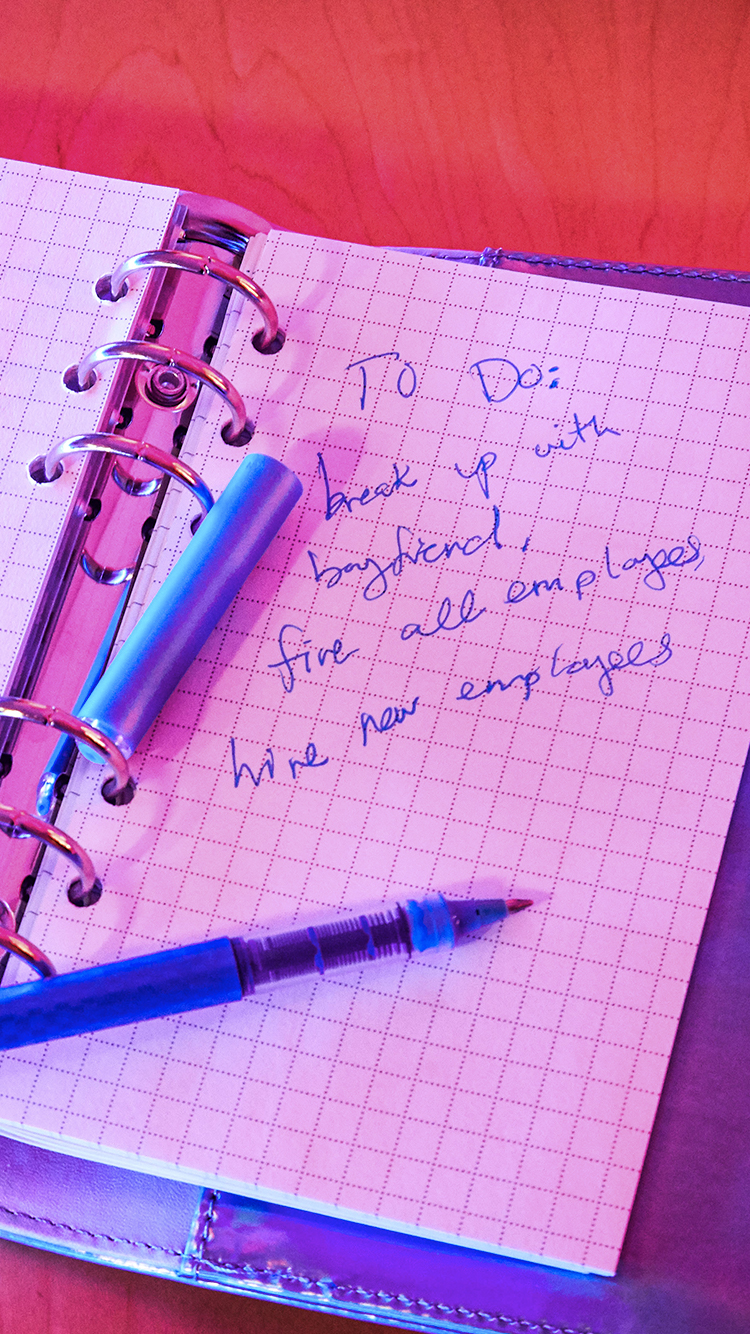 To Do:
break up with
boyfriend,
fire all employees,
hire new employees